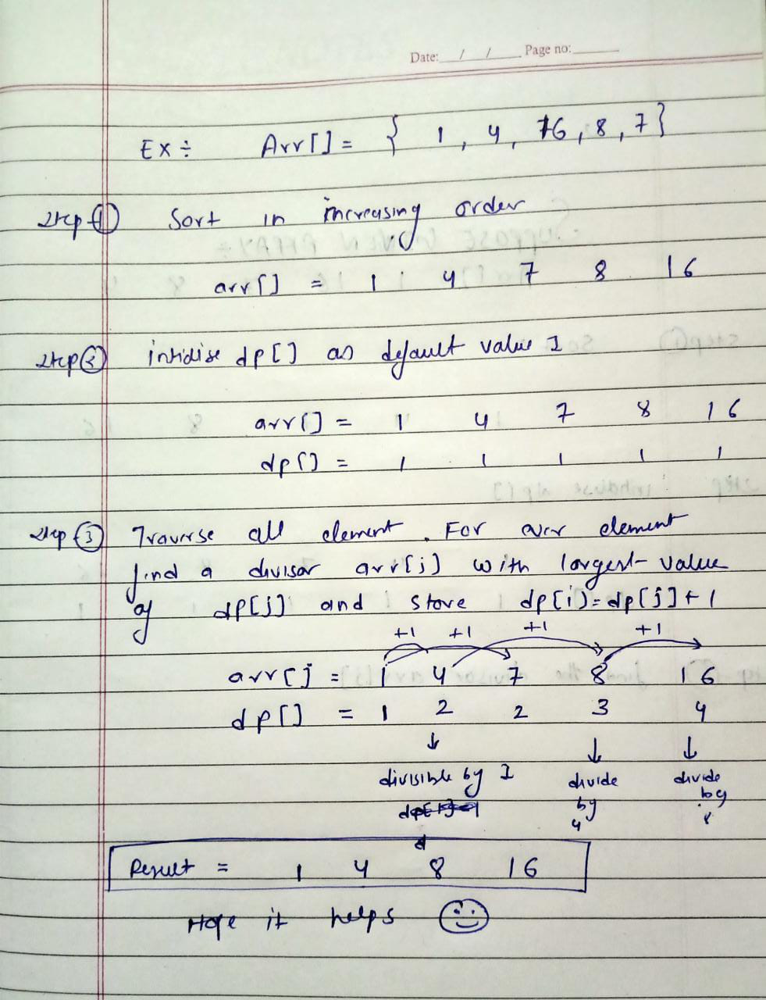 Date: / / Page no:
Ex ÷ Arr[] = { 1, 4, 16, 8, 7}
Step ① Sort in increasing order
arr[] = 1 4 7 8 16
Step ② intidise dp[] as default value 1
arr[] = 1 4 7 8 16
dp[] = 1 1 1 1 1
Step ③ Traverse all element. For over element
find a divisar arr[j] with largest value
of dp[j] and store dp[i)=dp[j]+1
+1 +1 +1 +1
arr[] = 1 4 7 8 16
dp[] = 1 2 2 3 4
↓ ↓ ↓
divisible by 1 divide divide
by by
4
Result = 1 4 8 16
Hope it helps